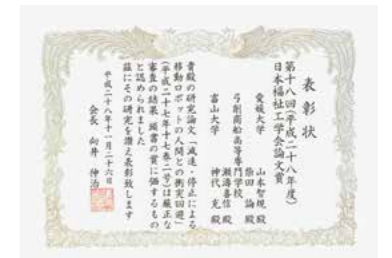 表彰状
第十八回(平成二十八年度)
日本福祉工学会論文賞
愛媛大学 山本智規殿
柴田 論殿
弓削商船高等専門学校 瀬濤喜信殿
富山大学 神代 充殿
貴殿の研究論文「減速・停止による
移動ロボットの人間との衝突回避」
(平成二十七年十七巻二号)は厳正な
審査の結果 頭書の賞に値するもの
と認められました
茲にその研究を讃え表彰致します
平成二十八年十一月二十六日
会長 向井 伸治